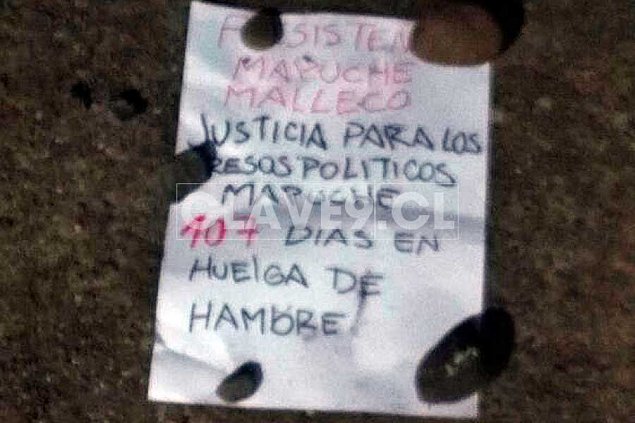 RESISTEN
MAPUCHE
MALLECO
JUSTICIA PARA LOS
RESOS POLITICOS
MAPUCHE
CLAVE9.CL
107 DIAS EN
HUELGA DE
HAMBRE